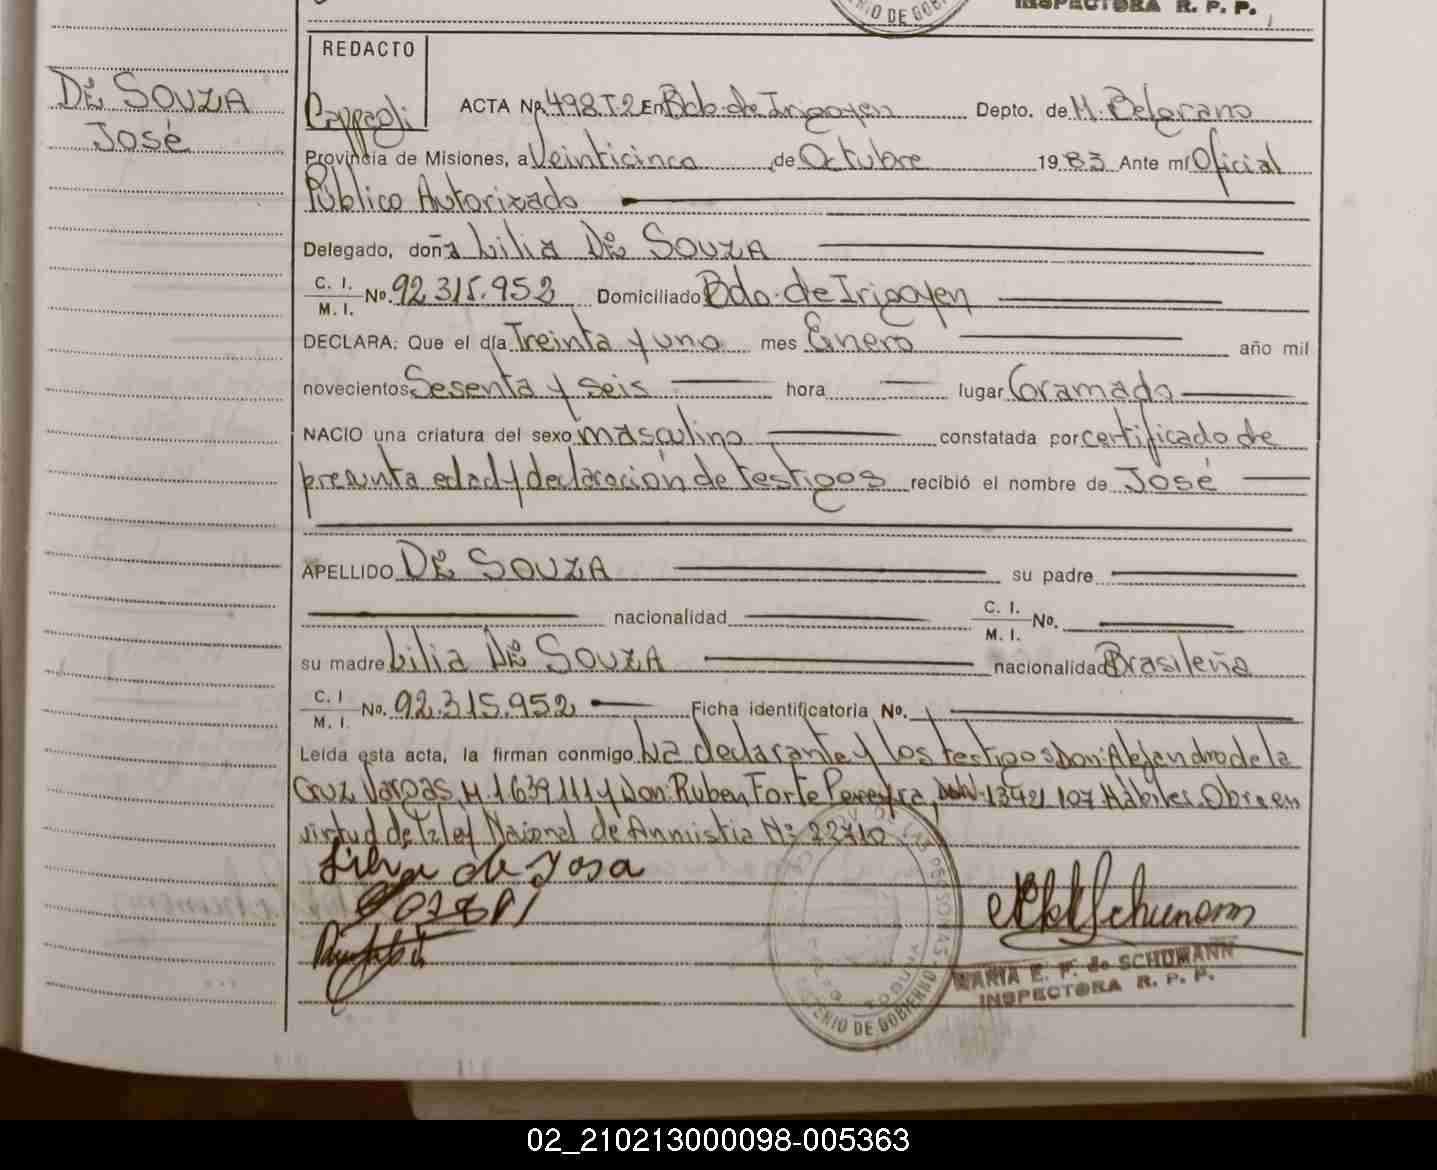 INSPECTORA R. P. P.
DE SOUZA
José
REDACTO
ACTA Nº 498 T2 En Bdo. de Irigoyen Depto. de M. Belgrano
Provincia de Misiones, a Veinticinco de Octubre 1983 Ante mí Oficial
Público Autorizado
Delegado, doña Lilia DE SOUZA
C. I.
M. I. No. 92.315.952 Domiciliado Bdo. de Irigoyen
DECLARA: Que el día Treinta y uno mes Enero año mil
novecientos Sesenta y seis hora lugar Gramado
NACIO una criatura del sexo masculino constatada por certificado de
presunta edad y declaración de testigos recibió el nombre de José
APELLIDO DE SOUZA su padre
nacionalidad C. I.
M. I. No.
su madre Lilia DE SOUZA nacionalidad Brasileña
C. I
M. I. No. 92.315.952 Ficha identificatoria No.
Leída esta acta, la firman conmigo La declarante y los testigos Don: Alejandro de la
Cruz Vargas, M. 1639111 y Don: Ruben Forte Pereyra, 13421107 Hábiles. Obra en
virtud de la ley Nacional de Amnistia Nº 22710
MARIA E. F. de SCHUMANN
INSPECTORA R. P. P.
DE GOBIERNO
02_210213000098-005363